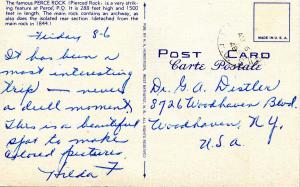 The famous PERCE ROCK (Pierced Rock) is a very strik-
ing feature at Perce, P.Q. It is 288 feet high and 1500
feet in length. The main rock contains an archway, as
also does the isolated rear section (detached from the
main rock in 1844.)
Friday 8-6
It has been a
most interesting
trip — never
a dull moment.
This is a beautiful
spot to make
colored pictures.
Hilda F
POST CARD
Carte Postale
MADE IN U.S.A.
Dr. G. A. Distler
8726 Woodhaven Blvd.
Woodhaven, N.Y.
U.S.A